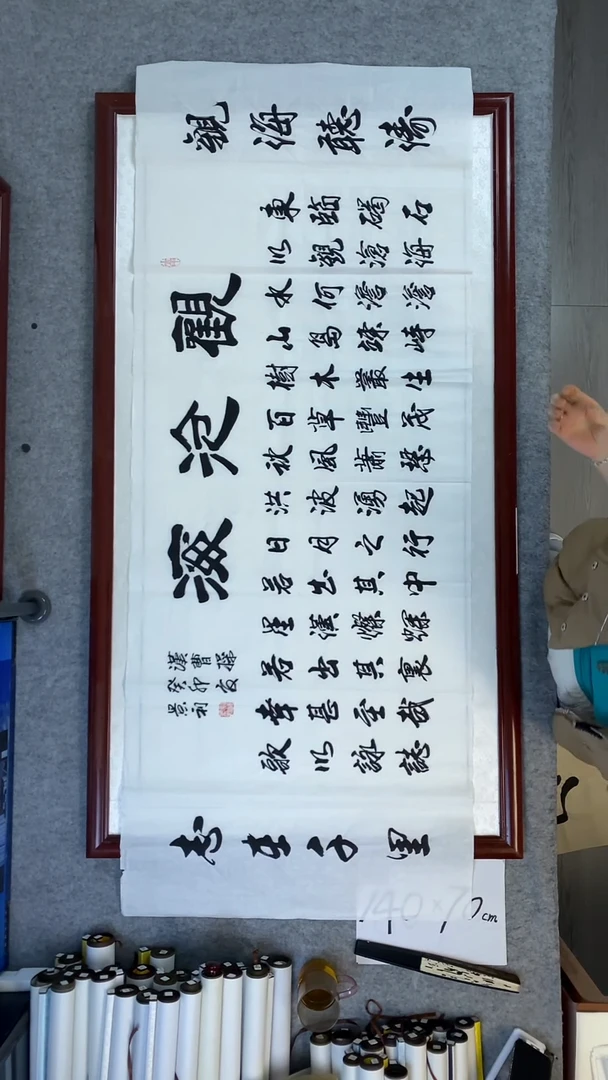 觀海聽濤
觀沧海
東臨碣石
以觀滄海
水何澹澹
山島竦峙
樹木叢生
百草豐茂
秋風蕭瑟
洪波湧起
日月之行
若出其中
星漢燦爛
若出其裏
幸甚至哉
歌以詠誌
漢曹操
癸卯夏
景利
志在千里
140×70cm